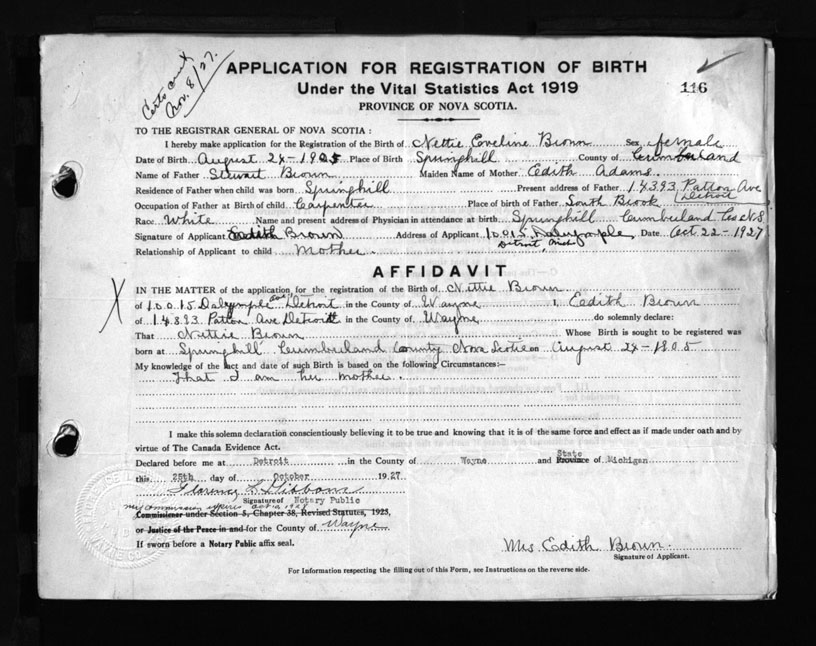 Certs sent
Nov. 8/27.
APPLICATION FOR REGISTRATION OF BIRTH
Under the Vital Statistics Act 1919
116
PROVINCE OF NOVA SCOTIA.
TO THE REGISTRAR GENERAL OF NOVA SCOTIA:
I hereby make application for the Registration of the Birth of Nettie Eveline Brown Sex female
Date of Birth August 24 - 1905 Place of Birth Springhill County of Cumberland
Name of Father Stewart Brown Maiden Name of Mother Edith Adams.
Residence of Father when child was born Springhill Present address of Father 14393 Patton Ave
Detroit
Occupation of Father at Birth of child Carpenter Place of birth of Father South Brook
Race White Name and present address of Physician in attendance at birth Springhill Cumberland Co N.S
Signature of Applicant Edith Brown Address of Applicant 10015 Dalrymple, Date Oct 22 - 1927
Detroit, Mich
Relationship of Applicant to child Mother.
AFFIDAVIT
IN THE MATTER of the application for the registration of the Birth of Nettie Brown
of 10015 Dalrymple Ave, Detroit in the County of Wayne I, Eedith Brown
of 14893 Patton Ave Detroit in the County of Wayne do solemnly declare:
That Nettie Brown Whose Birth is sought to be registered was
born at Springhill Cumberland County Nova Scotia on August 24 - 1905
My knowledge of the fact and date of such Birth is based on the following Circumstances:—
That I am her mother.
I make this solemn declaration conscientiously believing it to be true and knowing that it is of the same force and effect as if made under oath and by
virtue of The Canada Evidence Act.
Declared before me at Detroit in the County of Wayne and State Province of Michigan
this 25th day of October 1927
Florence L Gibbons
Signature of Notary Public
my commission expires Oct 12 1928
Commissioner under Section 5, Chapter 38, Revised Statutes, 1923,
or Justice of the Peace in and for the County of Wayne
If sworn before a Notary Public affix seal.
Mrs Edith Brown.
Signature of Applicant.
For Information respecting the filling out of this Form, see Instructions on the reverse side.